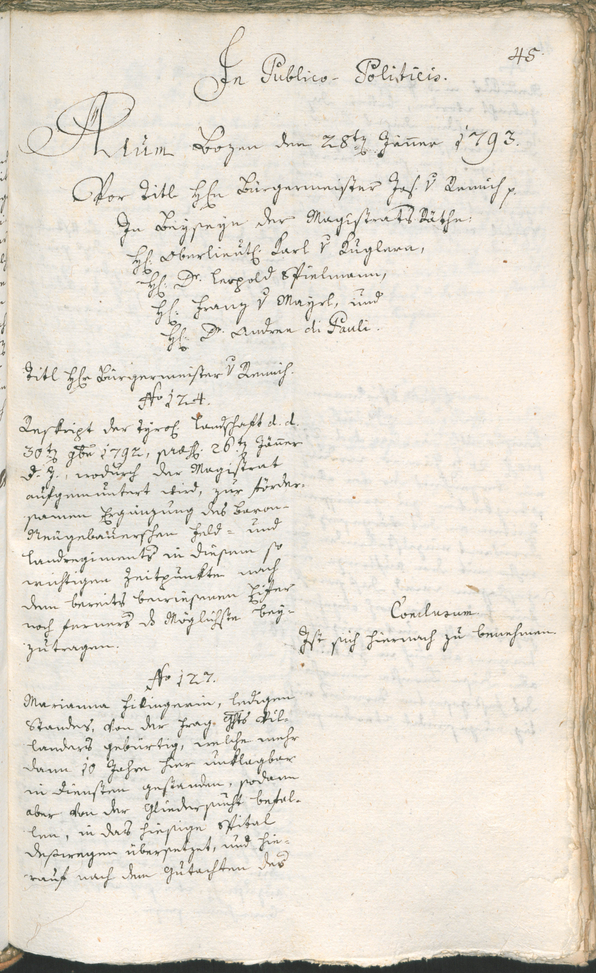 45.
In Publico-Politicis.
Actum Bozen den 28ten Jänner 1793.
Vor Titl Hhn Bürgermeister Jos. v Remich p
In Beyseyn der Magistrats Räthe:
Hh. Oberlieut. Karl v Kuglern,
Hh. Dr. Leopold Spielmann,
Hh. Franz v Mayrl, und
Hh. Dr. Andree di Pauli.
Titl Hhr Bürgermeister v Remich.
No 124.
Reskript der tyrol. Landschaft d. d.
30ten 9bris 1792, praes. 26ten Jänner
d. J., wodurch der Magistrat
aufgemuntert wird, zur förder-
samen Ergänzung des Baron-
Neugebauerschen Feld- und
Landregiments in diesem so
wichtigen Zeitpunkte nach
dem bereits bewiesenen Eifer
noch ferners das Möglichste bey-
zutragen.
Conclusum
Ist sich hiernach zu benehmen.
No 127.
Marianna, ledigen
Standes, von der Frag. Ghts Vil-
landers gebürtig, welche mehr
dann 10 Jahre hier unklagbar
in Diensten gestanden, sodann
aber von der Gliedersucht befal-
len, in das hiesige Spital
deßwegen übersetzet, und hie-
rauf nach dem Gutachten des